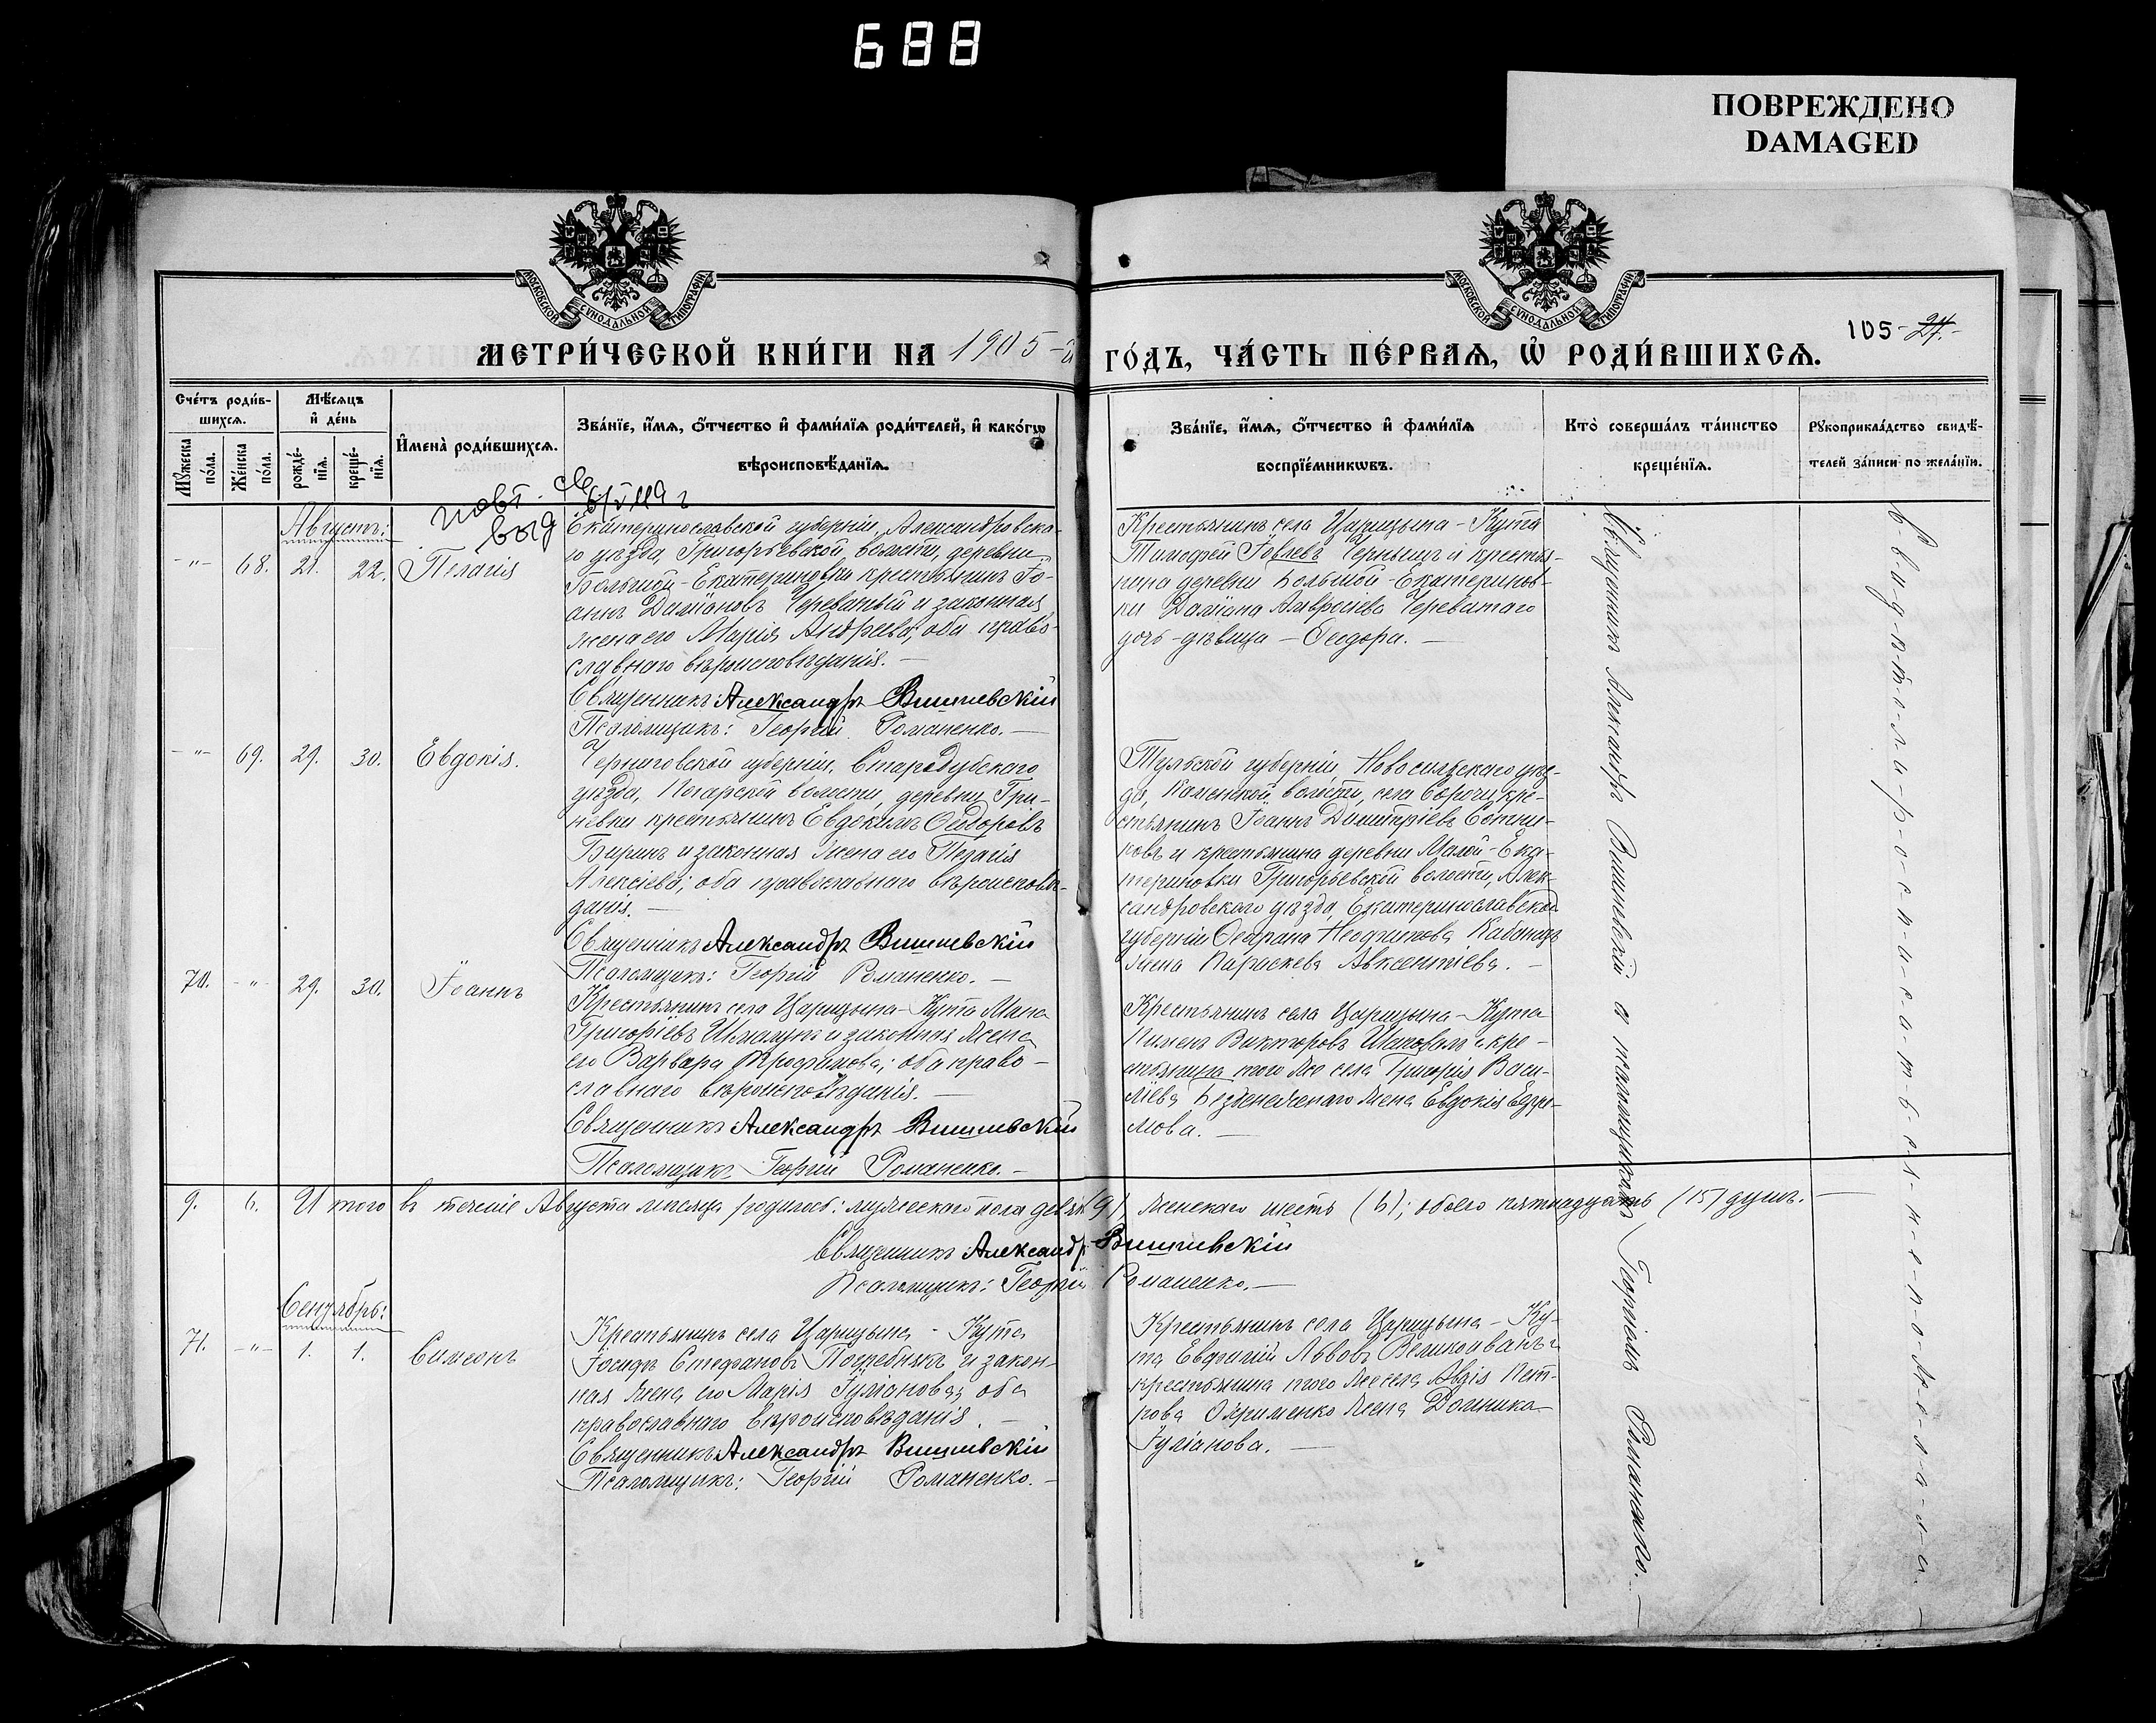 688
ПОВРЕЖДЕНО
DAMAGED
МОСКОВСКОЙ СУНОДАЛЬНОЙ ТИПОГРАФІИ
МОСКОВСКОЙ СУНОДАЛЬНОЙ ТИПОГРАФІИ
105 - 24. -
МЕТРИ́ЧЕСКОЙ КНИ́ГИ НА 1905-й
ГО́ДЪ, ЧА́СТЬ ПЕ́РВАЯ, Ѡ РОДИ́ВШИХСЯ.
Сче́тъ роди́в-
шихся.
Мꙋжеска по́ла.
Же́нска по́ла.
Мѣ́сяцъ
и҆ де́нь
рожде́-нїя.
креще́-нїя.
И҆мена̀ роди́вшихся.
Зва́нїе, и҆́мя, ѻ҆́тчество и҆ фами́лїя роди́телей, и҆ како́гѡ
вѣроисповѣ́данїя.
Зва́нїе, и҆́мя, ѻ҆́тчество и҆ фами́лїя
воспрїе́мникѡвъ.
Кто̀ соверша́лъ та́инство
креще́нїя.
Рꙋкоприкла́дство свидѣ́-
телей за́писи по жела́нїю.
повт. св
выд
Августъ:
-"- 68. 21. 22. Пелагія
Екатеринославской губерніи, Александровска-
го уѣзда, Григорьевской волости, деревни
Большой-Екатериновки крестьянинъ Іо-
аннъ Даміановъ Череватый и законная
жена его Марія Андреева; оба право-
славнаго вѣроисповѣданія. —
Священникъ: Александръ Вишневскій
Псаломщикъ: Георгій Романенко. —
Крестьянинъ села Царицына-Кута
Тимофей Іовлевъ Чернышъ и крестья-
нина деревни Большой-Екатеринов-
ки Даміана Амвросіева Череватаго
дочь-дѣвица — Ѳеодора. —
-"- 69. 29. 30. Евдокія.
Черниговской губерніи, Стародубскаго
уѣзда, Погарской волости, деревни Гри-
невки крестьянинъ Евдокимъ Ѳеодоровъ
Биринъ и законная жена его Пелагія
Алексіева; оба православнаго вѣроисповѣ-
данія. —
Священникъ Александръ Вишневскій
Псаломщикъ: Георгій Романенко. —
Тульской губерніи, Новосильскаго уѣз-
да, Каменской волости, села
крестьянинъ Іоаннъ Димитріевъ Сотни-
ковъ и крестьянина деревни Малой-Ека-
териновки Григорьевской волости, Алек-
сандровскаго уѣзда, Екатеринославской
губерніи
жена Параскева Авксентіева. —
70. -"- 29. 30. Іоаннъ
Крестьянинъ села Царицына-Кута
Григоріевъ и законная жена
его Варвара Трофимова; оба право-
славнаго вѣроисповѣданія. —
Священникъ Александръ Вишневскій
Псаломщикъ Георгій Романенко. —
Крестьянинъ села Царицына-Кута
Пименъ Викторовъ Шаповалъ и кре-
стьянина того же села Григорія Васи-
ліева Безденежнаго жена Евдокія Ефре-
мова. —
9. 6. Итого въ теченіе Августа мѣсяца родилось: мужескаго пола девять (9), женскаго шесть (6); обоего пятнадцать (15) душъ. —
Священникъ Александръ Вишневскій
Псаломщикъ: Георгій Романенко. —
Сентябрь:
71. -"- 1. 1. Симеонъ
Крестьянинъ села Царицына-Кута
Іосифъ Стефановъ Погребнякъ и закон-
ная жена его Марія Іуліанова; оба
православнаго вѣроисповѣданія. —
Священникъ Александръ Вишневскій
Псаломщикъ: Георгій Романенко. —
Крестьянинъ села Царицына-Ку-
та Евфимій Львовъ Великоиваненко и
крестьянина того же села Авдія Пет-
рова Охрименко жена Домника
Іуліанова. —
Священникъ Александръ Вишневскій и псаломщикъ Георгій Романенко. —